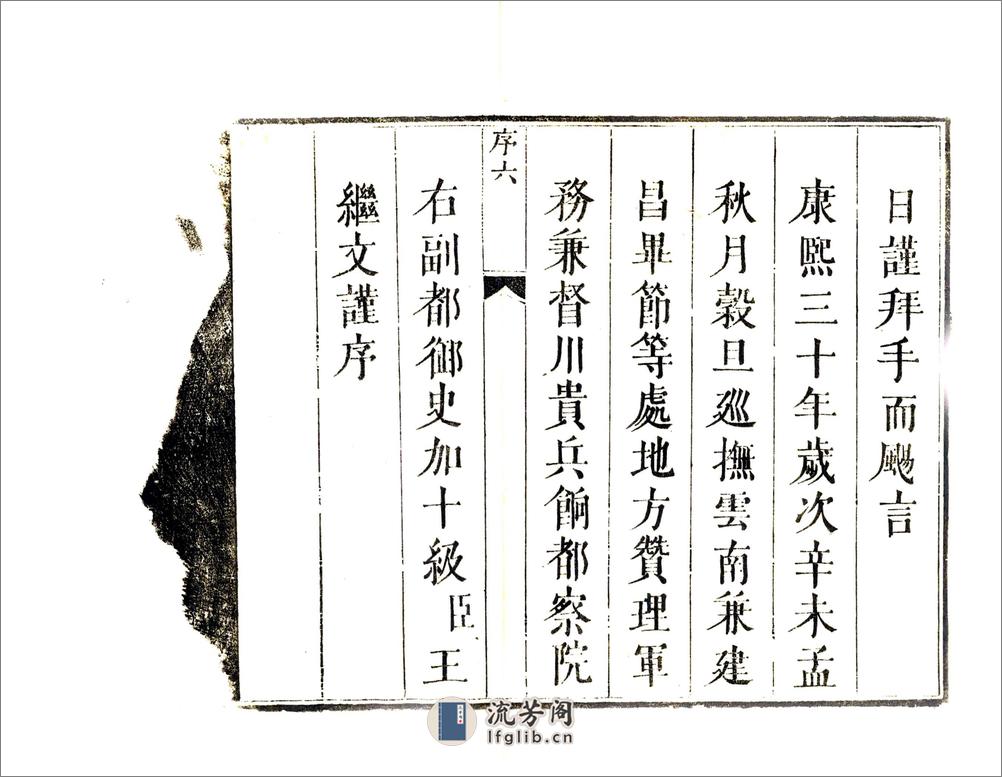 日謹拜手而颺言
康熙三十年歲次辛未孟
秋月穀旦廵撫雲南兼建
昌畢節等處地方贊理軍
務兼督川貴兵餉都察院
序六
右副都御史加十級臣王
繼文謹序
流芳阁
lfglib.cn